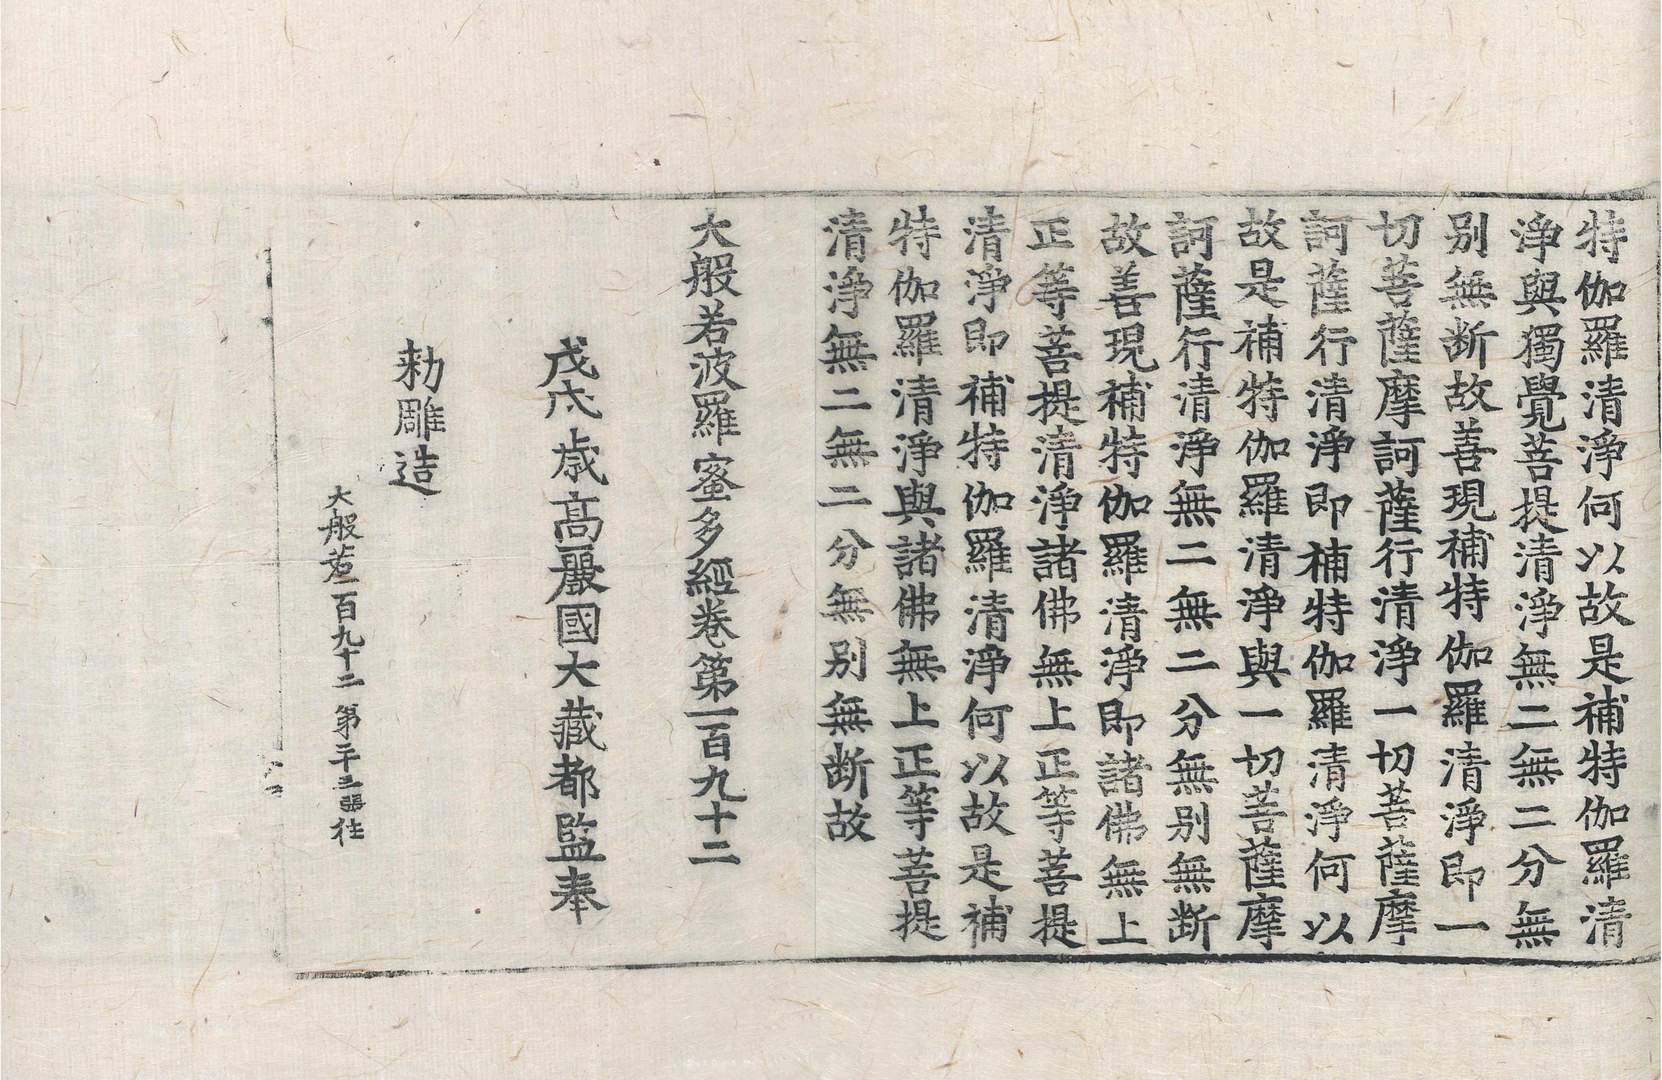 特伽羅清淨何以故是補特伽羅清
淨與獨覺菩提清淨無二無二分無
別無断故善現補特伽羅清淨即一
切菩薩摩訶薩行清淨一切菩薩摩
訶薩行清淨即補特伽羅清淨何以
故是補特伽羅清淨與一切菩薩摩
訶薩行清淨無二無二分無別無断
故善現補特伽羅清淨即諸佛無上
正等菩提清淨諸佛無上正等菩提
清淨即補特伽羅清淨何以故是補
特伽羅清淨與諸佛無上正等菩提
清淨無二無二分無別無断故
大般若波羅蜜多經卷第一百九十二
戊戌歳高麗國大藏都監奉
勑雕造
大般若一百九十二 第二十三張 往